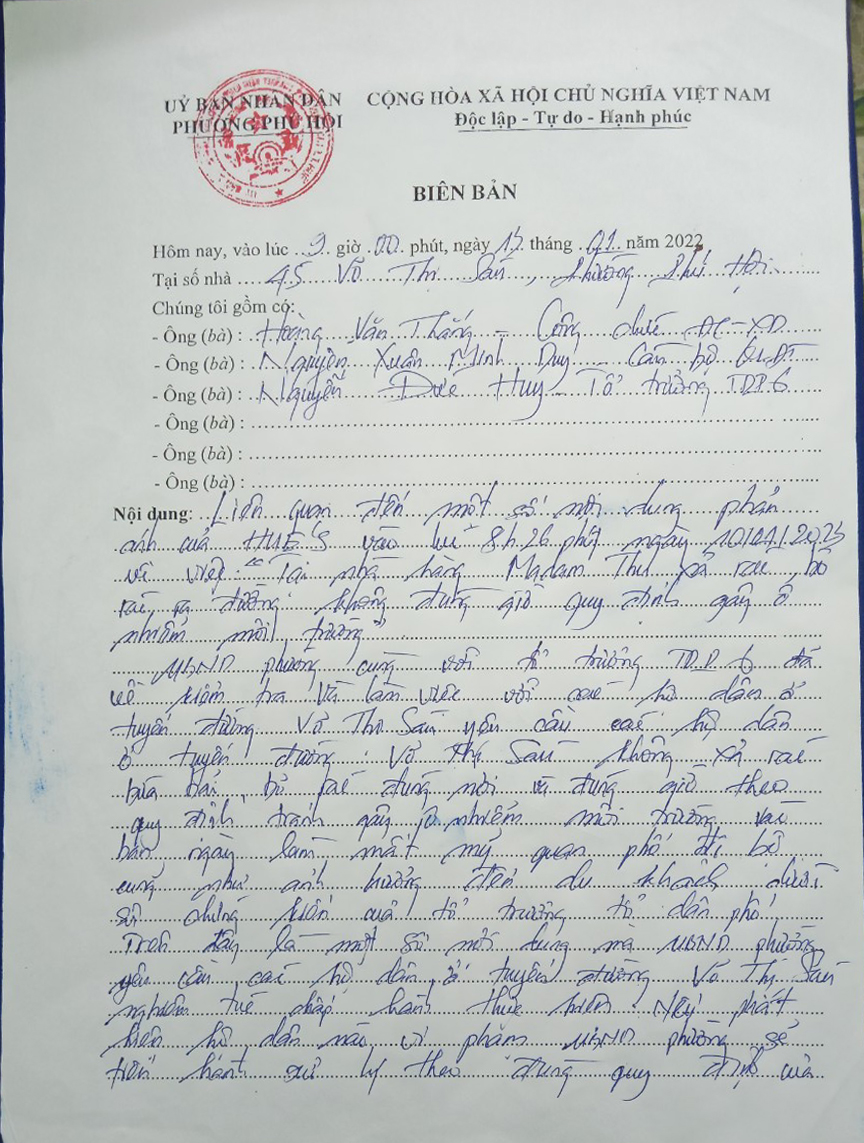 UỶ BAN NHÂN DÂN CỘNG HÒA XÃ HỘI CHỦ NGHĨA VIỆT NAM
PHƯỜNG PHÚ HỘI Độc lập - Tự do - Hạnh phúc
BIÊN BẢN
Hôm nay, vào lúc 9 giờ 00 phút, ngày tháng 01 năm 2022
Tại số nhà 45 Võ Thị Sáu, phường Phú Hội
Chúng tôi gồm có:
- Ông (bà) : Hoàng Văn Thắng - Công chức ĐC-XD
- Ông (bà) : Nguyễn Xuân Minh Duy - Cán bộ QLĐT
- Ông (bà) : Nguyễn Đức Huy - Tổ trưởng TDP 6
- Ông (bà) :
- Ông (bà) :
- Ông (bà) :
Nội dung: Liên quan đến một số nội dung phản
ánh của HUE S vào lúc 8h26 phút ngày 10/01/2023
về việc: "Tại nhà hàng Madam Thu xả rác, bỏ
rác ra đường không đúng giờ quy định gây ô
nhiễm môi trường"
UBND phường cùng với tổ trưởng TDP 6 đã
về kiểm tra và làm việc với các hộ dân ở
tuyến đường Võ Thị Sáu yêu cầu các hộ dân
ở tuyến đường Võ Thị Sáu không xả rác
bừa bãi, bỏ rác đúng nơi và đúng giờ theo
quy định tránh gây ô nhiễm môi trường vào
ban ngày làm mất mỹ quan phố đi bộ
cũng như ảnh hưởng đến du khách dưới
sự chứng kiến của tổ trưởng tổ dân phố.
Trên đây là một số nội dung mà UBND phường
yêu cầu các hộ dân ở tuyến đường Võ Thị Sáu
nghiêm túc chấp hành thực hiện. Nếu phát
hiện hộ dân nào vi phạm UBND phường sẽ
tiến hành xử lý theo đúng quy định của